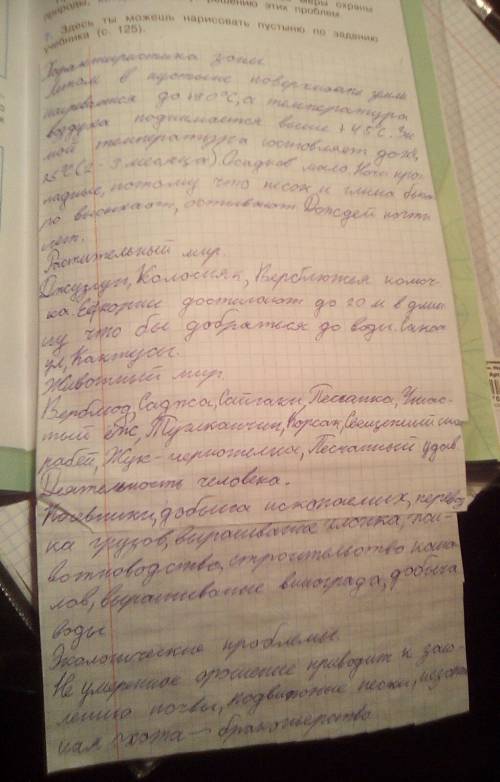 меры охраны
природы, решению этих проблем.
7. Здесь ты можешь нарисовать пустыню по заданию
учебника (с. 125).
Характеристика зоны
Летом в пустыне поверхность земли
нагревается до +80°С, а температура
воздуха поднимается выше +45°С. Зи
мой температура составляет до
(2-3 месяца). Осадков мало. Ночи прох
ладные, потому что песок и глина быст
ро высыхают, остывают. Дождей почти
нет.
Растительный мир.
Джузгун, Колосняк, Верблюжья колюч-
ка. Её корни достигают до 20 м в длин
ну что бы добраться до воды. Сакса
ул, Кактусы.
Животный мир.
Верблюд, Саджа, Сайгаки, Песчанка, Ушас-
тый ёж, Тушканчик, Корсак, Священный ска
рабей, Жук-чернотелка, Песчаный удав.
Деятельность человека.
Кочевники, добыча ископаемых, перевоз
ка грузов, выращивание хлопка,
вотноводство, строительство кана
лов, выращивание винограда, добыча
воды
Экологические проблемы.
Не умеренное орошение приводит к засо-
лению почвы, подвижные пески,
ная охота - браконьерство.